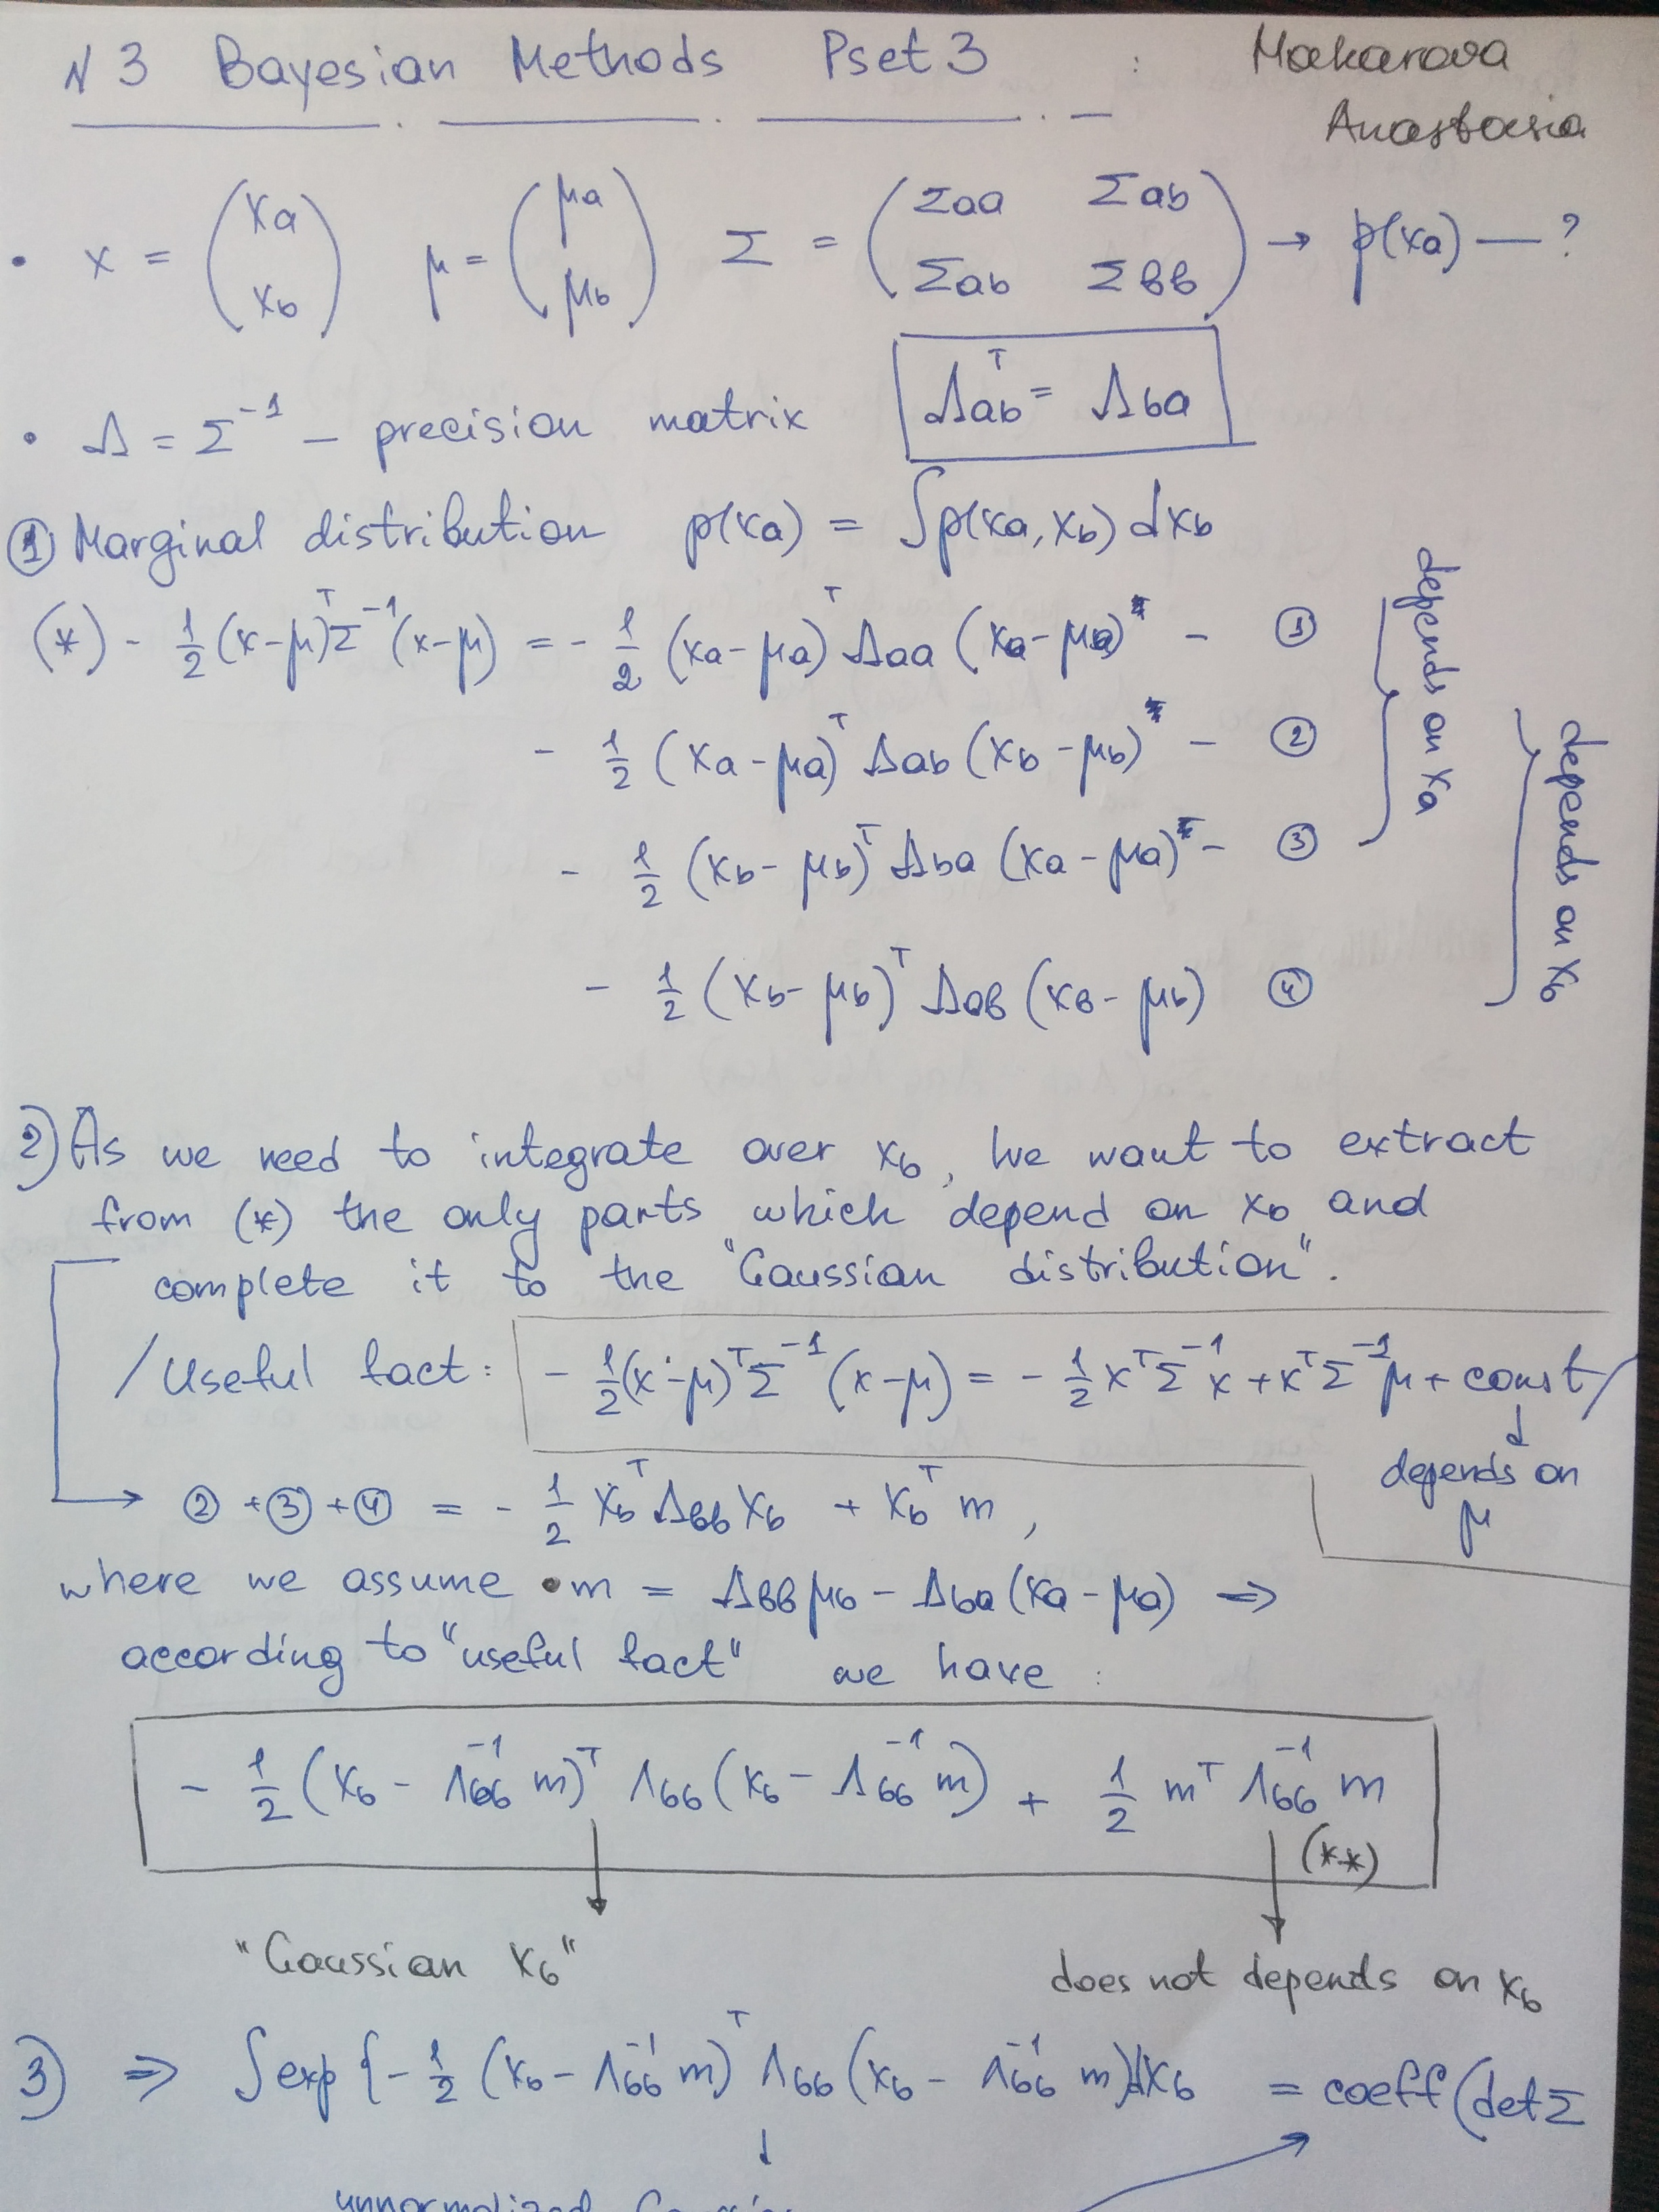 N3 Bayesian Methods Pset 3 : Makarova
Anastasia
• x = (xa xb) μ = (μa μb) Σ = (Σaa Σab Σab Σbb) → p(xa) — ?
• Λ = Σ⁻¹ – precision matrix Λabᵀ = Λba
① Marginal distribution p(xa) = ∫p(xa, xb) dxb
(*) - 1/2 (x-μ)ᵀΣ⁻¹(x-μ) = - 1/2 (xa-μa)ᵀ Λaa (xa-μa) - ①
- 1/2 (xa-μa)ᵀ Λab (xb-μb) - ②
- 1/2 (xb-μb)ᵀ Λba (xa-μa) - ③
- 1/2 (xb-μb)ᵀ Λbb (xb-μb) ④
depends on xa
depends on xb
2) As we need to integrate over xb, we want to extract
from (*) the only parts which depend on xb and
complete it to the "Gaussian distribution".
/Useful fact: - 1/2 (x-μ)ᵀΣ⁻¹(x-μ) = - 1/2 xᵀΣ⁻¹x + xᵀΣ⁻¹μ + const/
depends on
μ
→ ② + ③ + ④ = - 1/2 xbᵀ Λbb xb + xbᵀ m ,
where we assume • m = Λbb μb - Λba (xa - μa) ⇒
according to "useful fact" we have :
- 1/2 (xb - Λbb⁻¹ m)ᵀ Λbb (xb - Λbb⁻¹ m) + 1/2 mᵀ Λbb⁻¹ m
(**)
"Gaussian xb"
does not depends on xb
3) ⇒ ∫exp{- 1/2 (xb - Λbb⁻¹ m)ᵀ Λbb (xb - Λbb⁻¹ m)dxb = coeff (detΣ
↓
unnormalized